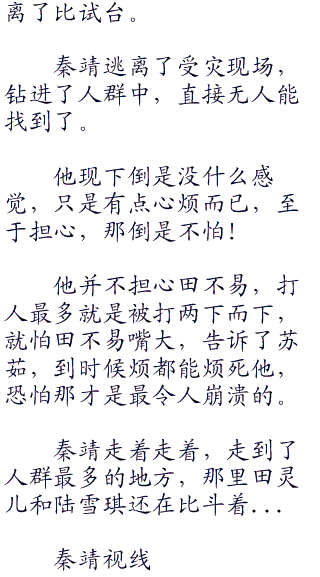 离了比试台。
秦靖逃离了受灾现场，
钻进了人群中，直接无人能
找到了。
他现下倒是没什么感
觉，只是有点心烦而已，至
于担心，那倒是不怕！
他并不担心田不易，打
人最多就是被打两下而下，
就怕田不易嘴大，告诉了苏
茹，到时候烦都能烦死他，
恐怕那才是最令人崩溃的。
秦靖走着走着，走到了
人群最多的地方，那里田灵
儿和陆雪琪还在比斗着...
秦靖视线